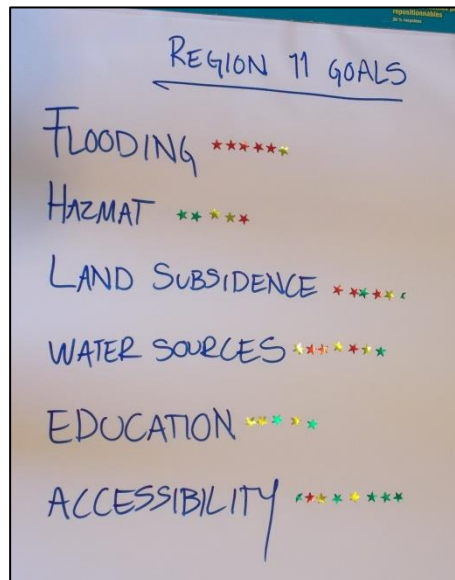 repositionnables
REGION 11 GOALS
FLOODING
HAZMAT
LAND SUBSIDENCE
WATER SOURCES
EDUCATION
ACCESSIBILITY